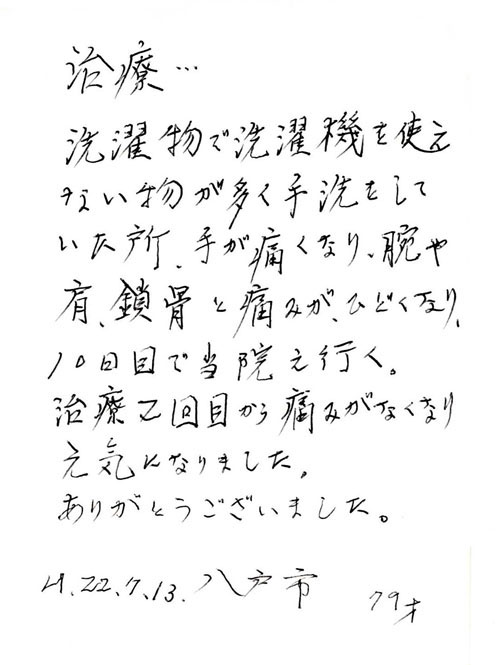 治療…
洗濯物で洗濯機を使え
ない物が多く手洗をして
いた所、手が痛くなり、腕や
肩、鎖骨と痛みが、ひどくなり、
10日目で当院え行く。
治療2回目から痛みがなくなり
元気になりました。
ありがとうございました。
H.22.7.13. 八戸市 79才